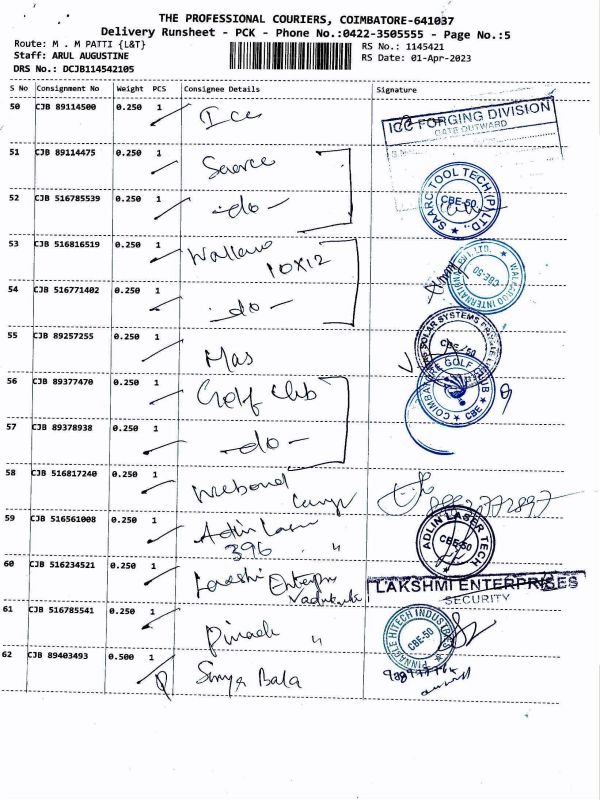 THE PROFESSIONAL COURIERS, COIMBATORE-641037
Delivery Runsheet - PCK - Phone No.:0422-3505555 - Page No.:5
Route: M . M PATTI {L&T}
RS No.: 1145421
Staff: ARUL AUGUSTINE
RS Date: 01-Apr-2023
DRS No.: DCJB114542105
S No Consignment No Weight PCS Consignee Details Signature
50 CJB 89114500 0.250 1 Icc
ICC FORGING DIVISION
GATE OUTWARD
51 CJB 89114475 0.250 1
52 CJB 516785539 0.250 1 -do-
SAARC TOOL TECH (P) LTD.,
CBE-50
53 CJB 516816519 0.250 1
10X12
54 CJB 516771402 0.250 1 -do-
CBE-50
55 CJB 89257255 0.250 1 Mas
SOLAR SYSTEMS
56 CJB 89377470 0.250 1 Golf Club
GOLF CLUB
CBE
57 CJB 89378938 0.250 1 -do-
58 CJB 516817240 0.250 1
59 CJB 516561008 0.250 1 Adlin Laser
396 "
ADLIN LASER TECH
CBE-50
60 CJB 516234521 0.250 1
LAKSHMI ENTERPRISES
SECURITY
61 CJB 516785541 0.250 1 "
PINNACLE HITECH INDUSTRIES
CBE-50
62 CJB 89403493 0.500 1 Surya Bala